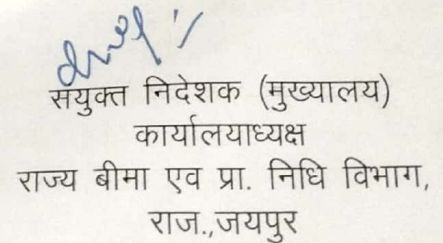 सयुक्त निदेशक (मुख्यालय)
कार्यालयाध्यक्ष
राज्य बीमा एव प्रा. निधि विभाग,
राज.,जयपुर